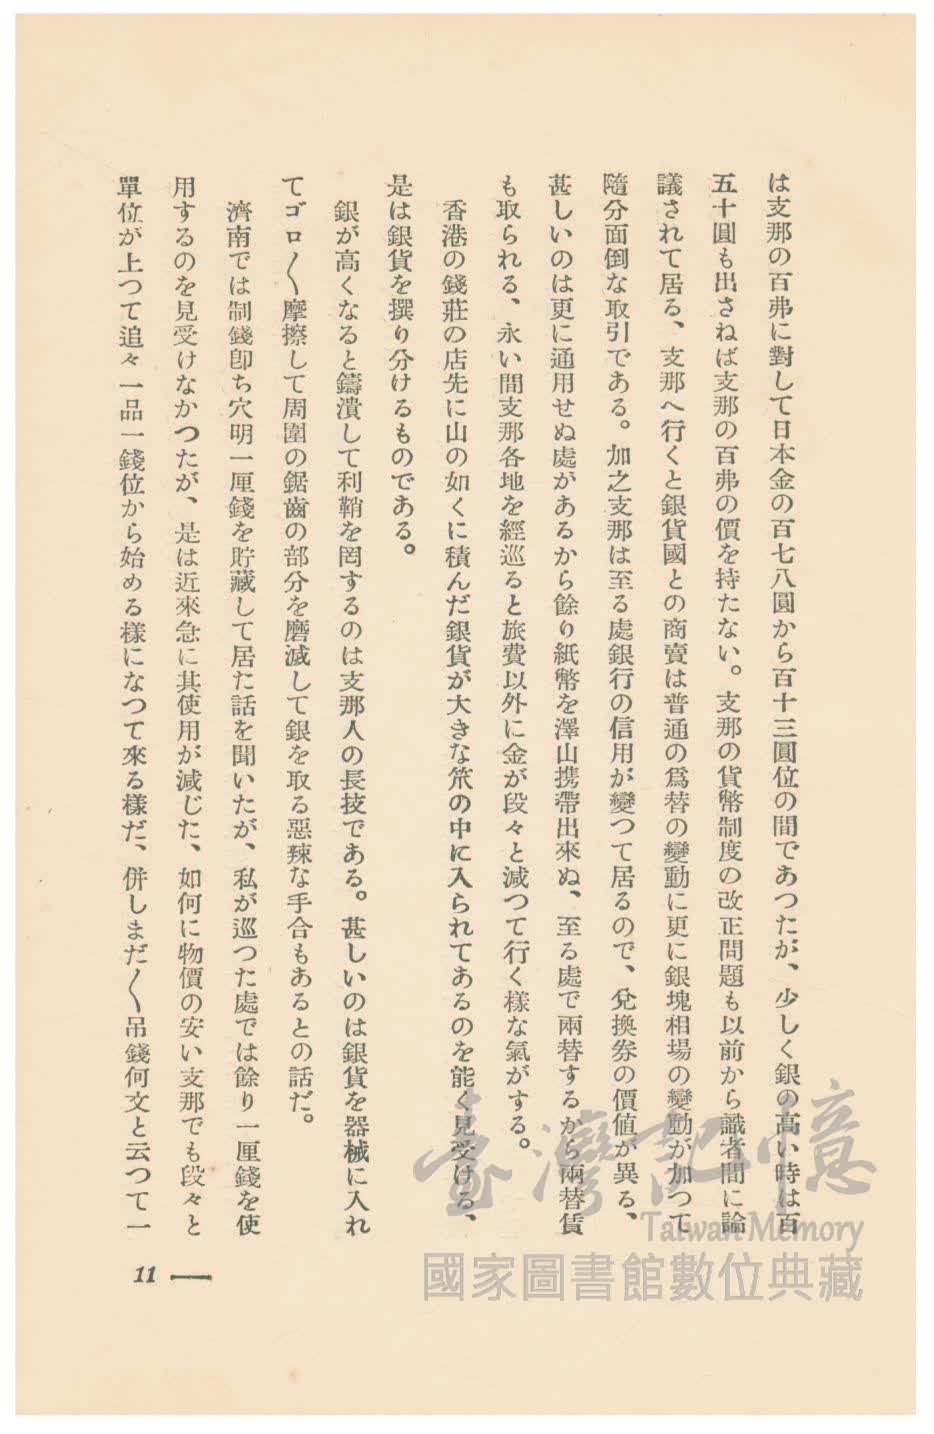 は支那の百弗に對して日本金の百七八圓から百十三圓位の間であつたが、少しく銀の高い時は百
五十圓も出さねば支那の百弗の價を持たない。支那の貨幣制度の改正問題も以前から識者間に論
議されて居る、支那へ行くと銀貨國との商賣は普通の爲替の變動に更に銀塊相場の變動が加つて
隨分面倒な取引である。加之支那は至る處銀行の信用が變つて居るので、兌換券の價値が異る、
甚しいのは更に通用せぬ處があるから餘り紙幣を澤山携帶出來ぬ、至る處で兩替するから兩替賃
も取られる、永い間支那各地を經巡ると旅費以外に金が段々と減つて行く樣な氣がする。
香港の錢莊の店先に山の如くに積んだ銀貨が大きな笊の中に入られてあるのを能く見受ける、
是は銀貨を撰り分けるものである。
銀が高くなると鑄潰して利鞘を罔するのは支那人の長技である。甚しいのは銀貨を器械に入れ
てゴロ〱摩擦して周圍の鋸齒の部分を磨滅して銀を取る惡辣な手合もあるとの話だ。
濟南では制錢卽ち穴明一厘錢を貯藏して居た話を聞いたが、私が巡つた處では餘り一厘錢を使
用するのを見受けなかつたが、是は近來急に其使用が減じた、如何に物價の安い支那でも段々と
單位が上つて追々一品一錢位から始める樣になつて來る樣だ、併しまだ〱吊錢何文と云つて一
11
臺灣記憶
Taiwan Memory
國家圖書館數位典藏